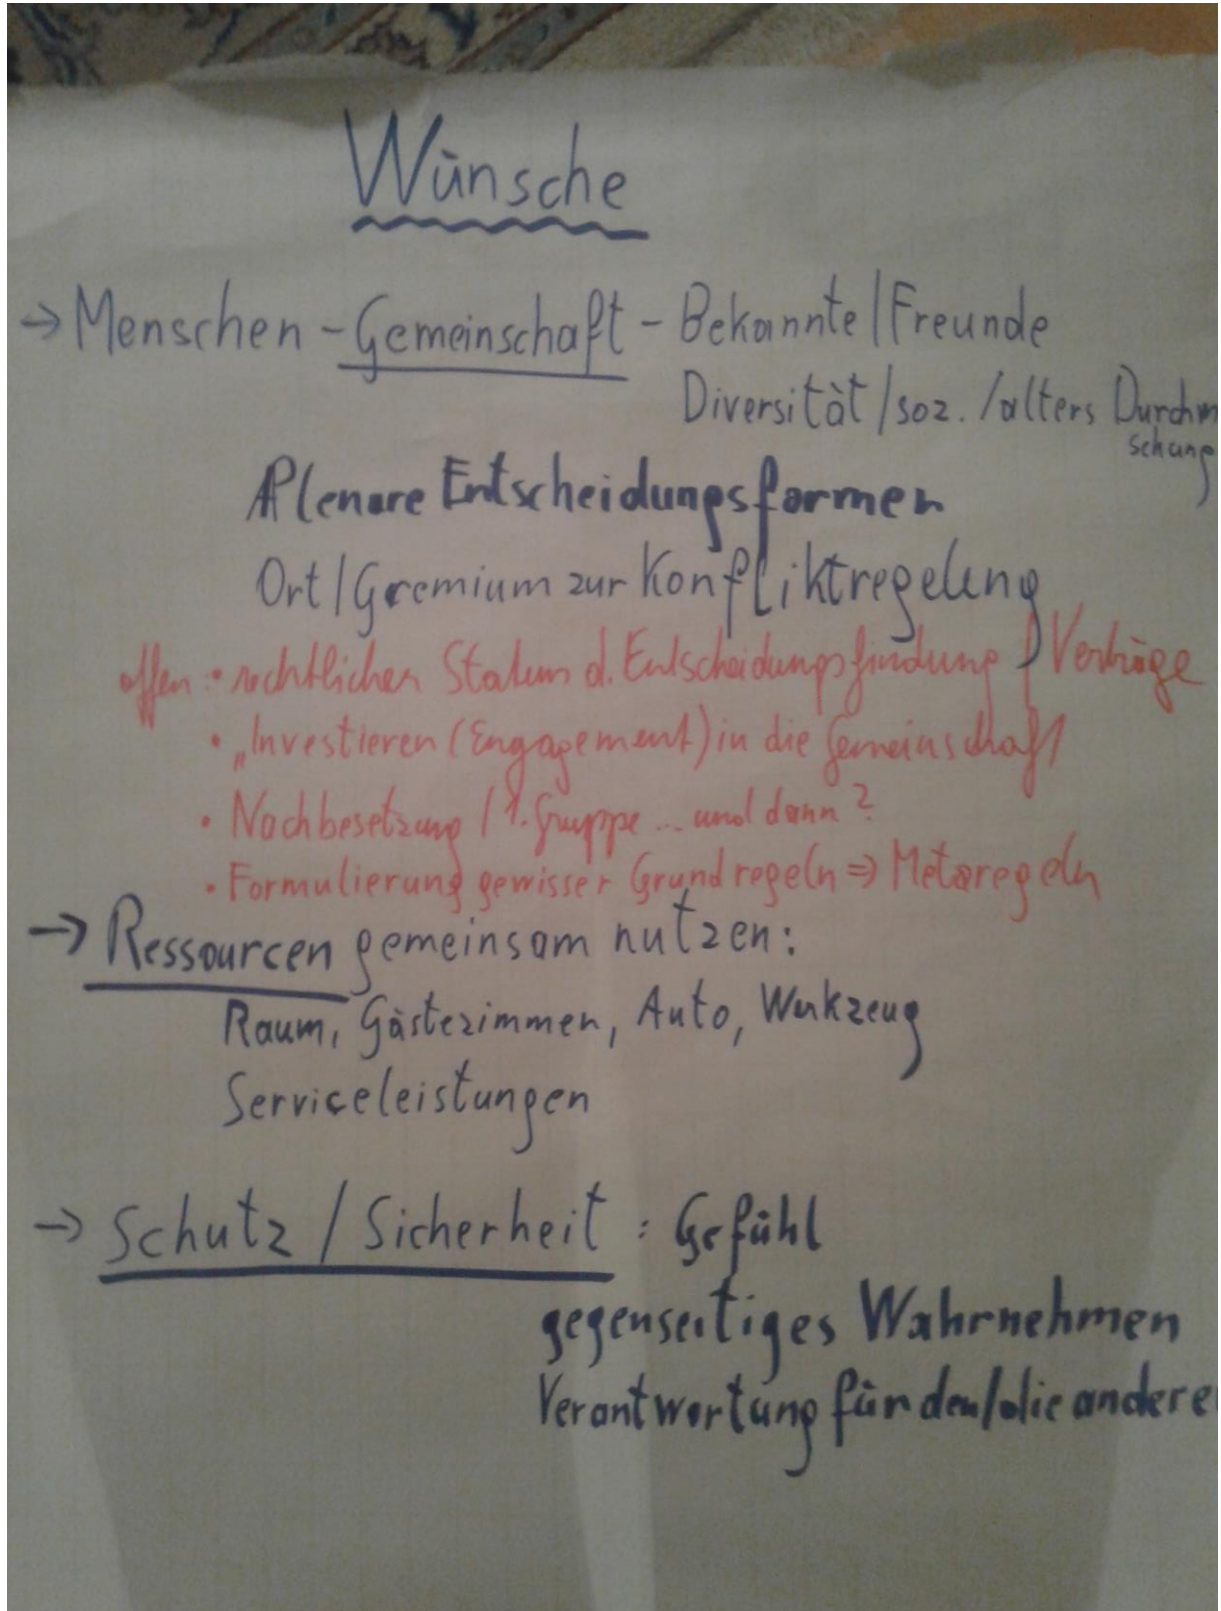 Wünsche
→ Menschen - Gemeinschaft - Bekannte / Freunde
Diversität / soz. / alters Durchm
schung
Plenare Entscheidungsformen
Ort / Gremium zur Konfliktregelung
offen: • rechtlicher Status d. Entscheidungsfindung / Verträge
• „Investieren (Engagement) in die Gemeinschaft
• Nachbesetzung / 1. Gruppe ... und dann?
• Formulierung gewisser Grundregeln ⇒ Metaregeln
→ Ressourcen gemeinsam nutzen:
Raum, Gästezimmer, Auto, Werkzeug
Serviceleistungen
→ Schutz / Sicherheit : Gefühl
gegenseitiges Wahrnehmen
Verantwortung für den/die andere